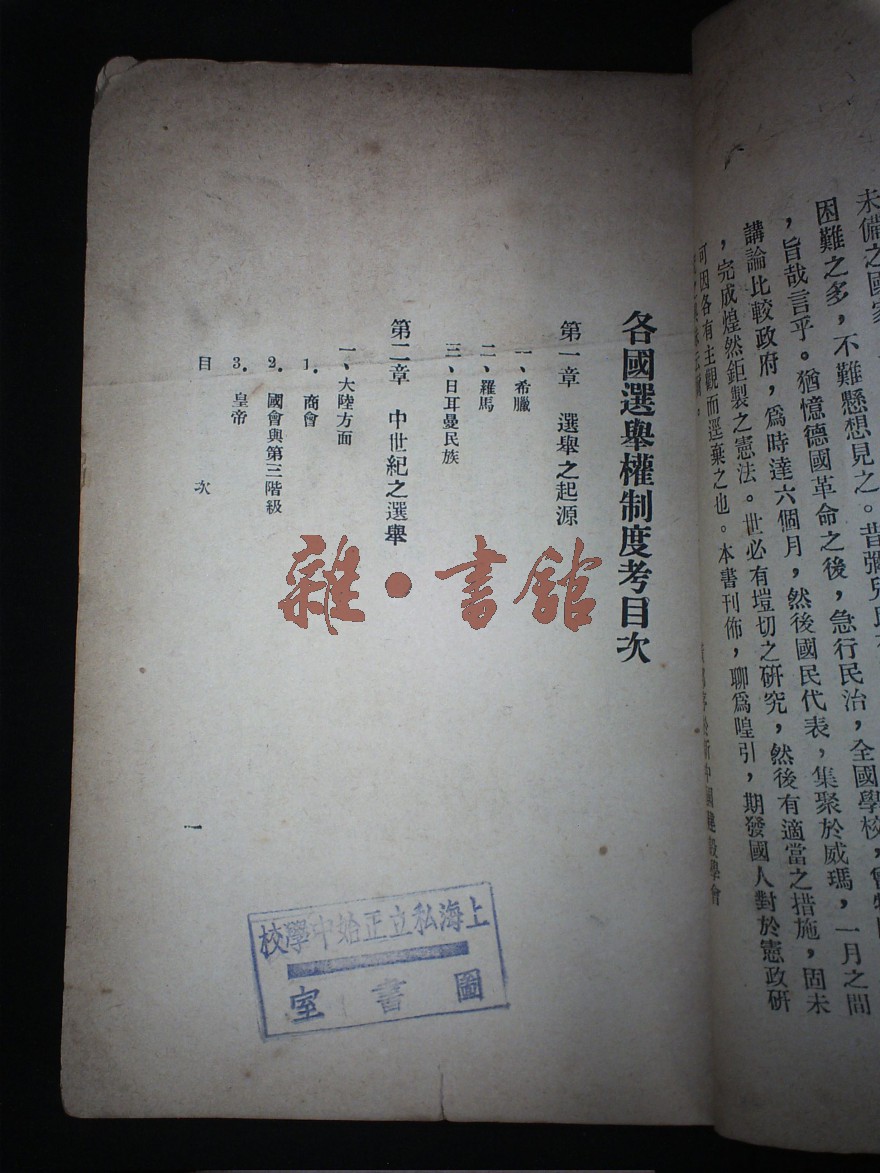 未備之國家
困難之多，不難懸想見之。昔彌兒
，旨哉言乎。猶憶德國革命之後，急行民治，全國學校，曾
講論比較政府，爲時達六個月，然後國民代表，集聚於威瑪，一月之間
，完成煌然鉅製之憲法。世必有塏切之研究，然後有適當之措施，固未
可因各有主觀而逕棄之也。本書刊佈，聊爲喤引，期發國人對於憲政研
序於新中國建設學會
各國選舉權制度考目次
第一章　選舉之起源
一、希臘
二、羅馬
三、日耳曼民族
第二章　中世紀之選舉
一、大陸方面
1．商會
2．國會與第三階級
3．皇帝
目　次
一
雜・書館
上海私立正始中學校
圖書室